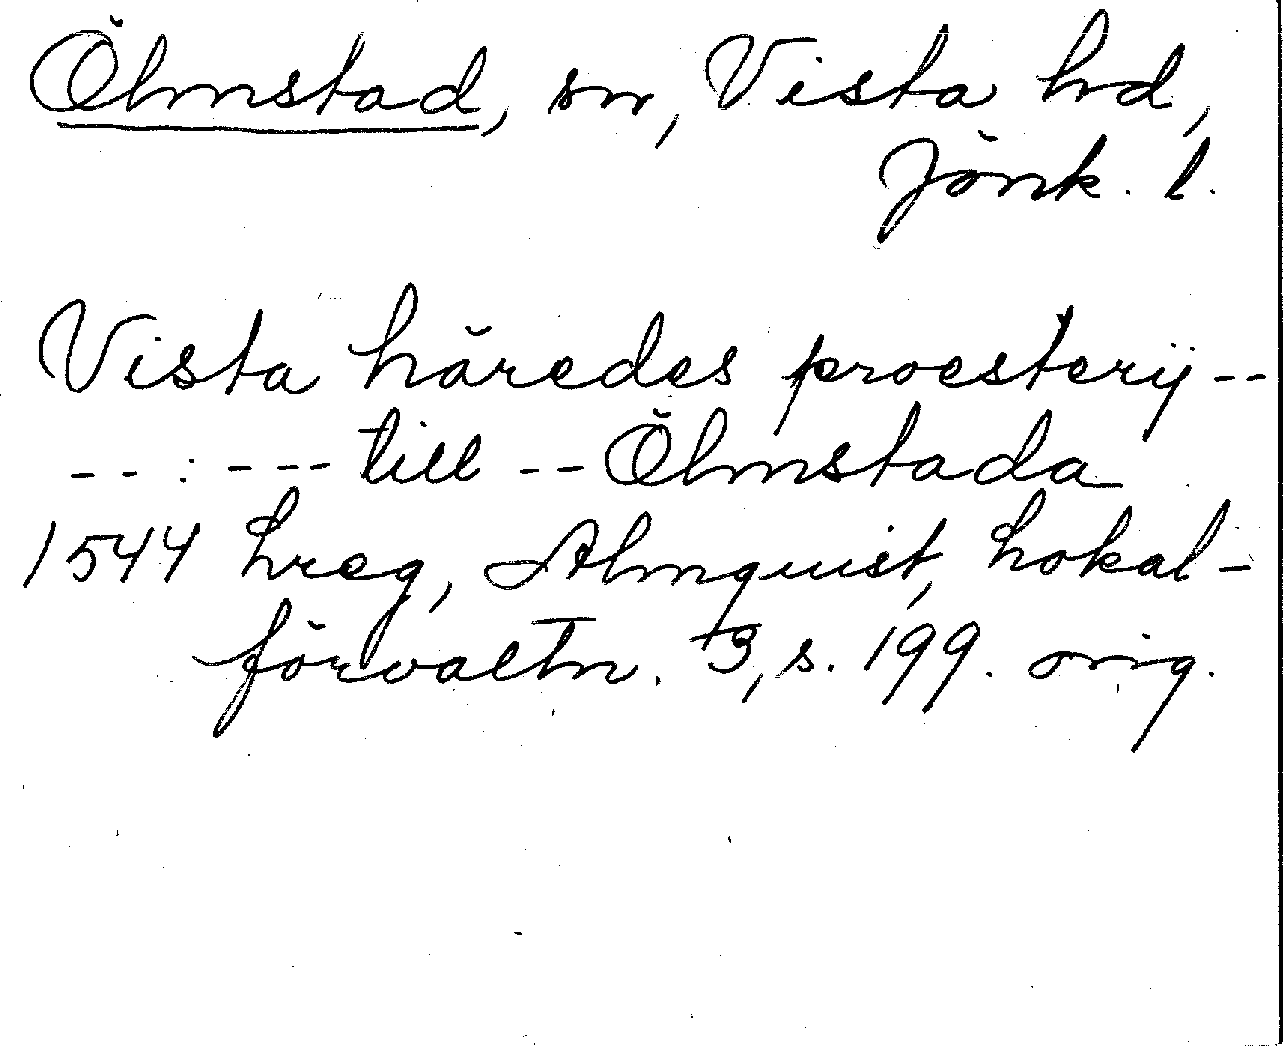 Ölmstad, sn, Vista hd,
Jönk. l.
Vista häredes proesterij --
-- : --- till -- Ölmstada
1544 Lreg, Almquist, Lokal-
förvaltn. 3, s. 199. orig.